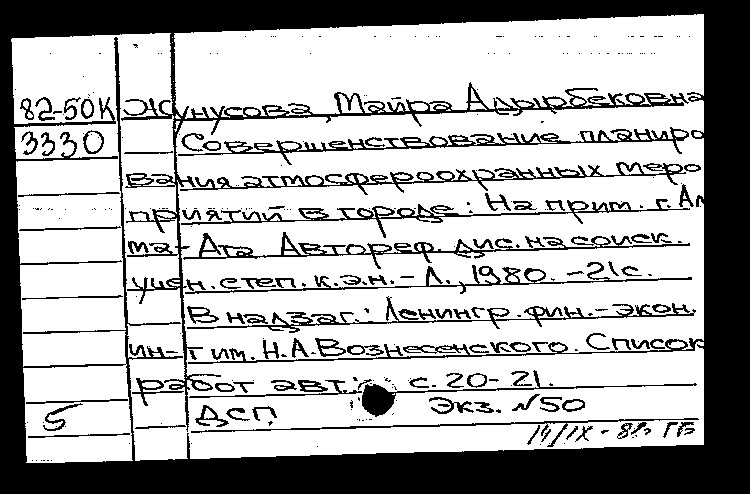 82-50К Жунусова, Майра Адырбековна
3330 Совершенствование планиро
вания атмосфероохранных меро
приятий в городе: На прим. г. Ал
ма-Ата Автореф. дис. на соиск.
учен. степ. к.э.н. - Л., 1980. - 21с.
В надзаг.: Ленингр. фин.-экон.
ин-т им. Н.А. Вознесенского. Список
работ авт.: с. 20-21.
5 ДСП Экз. №50
14/IX - 82г ГБ